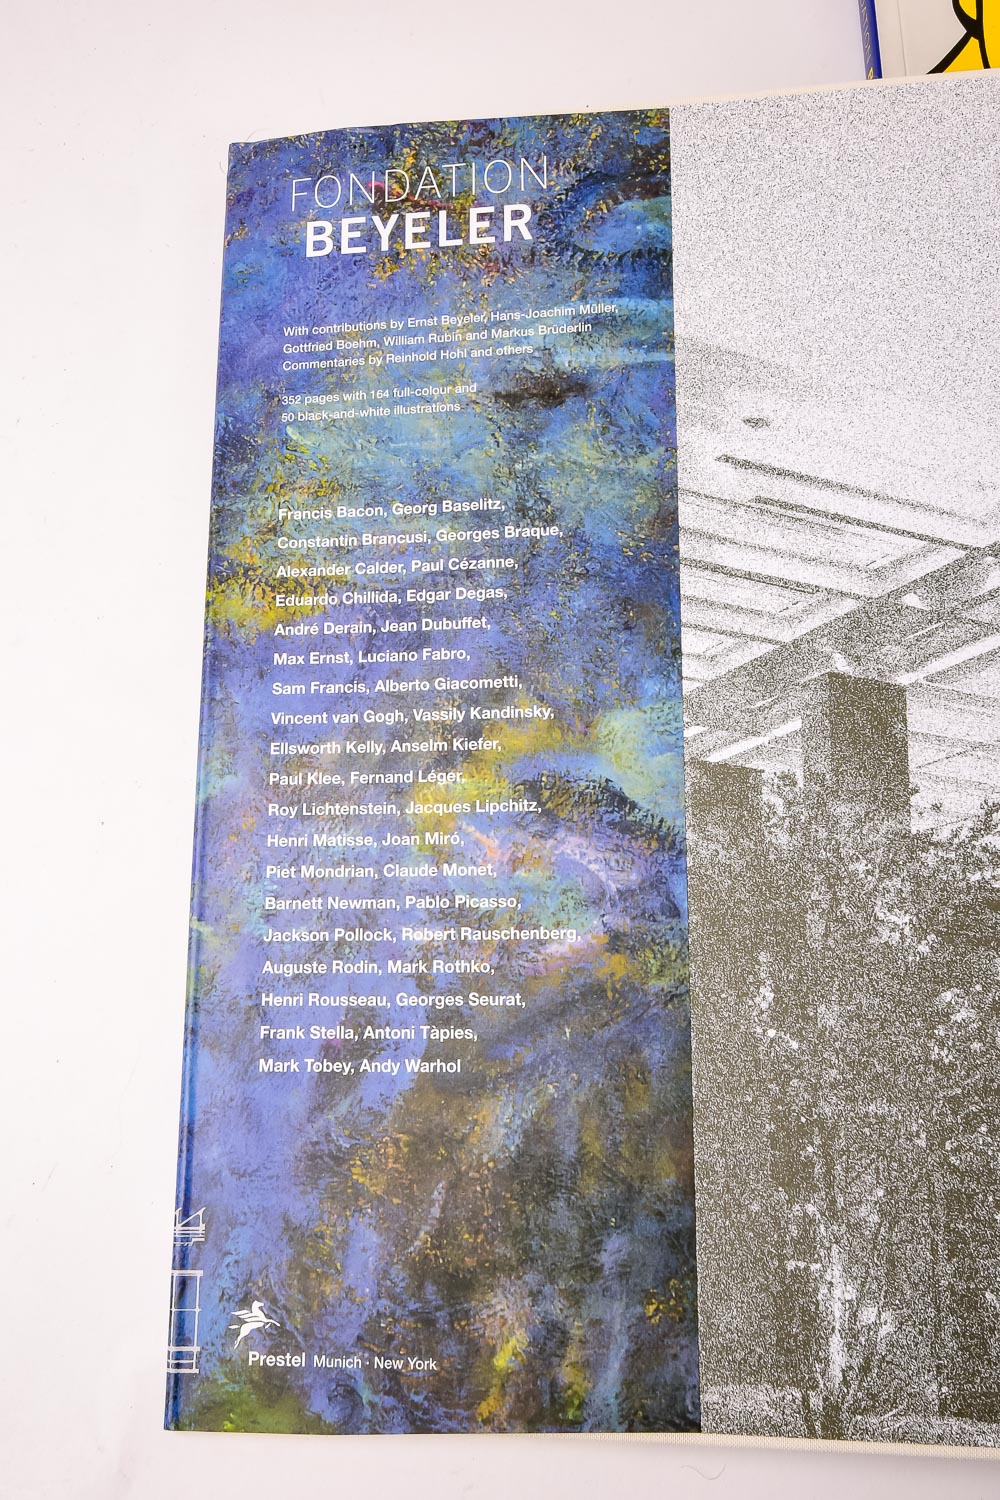 FONDATION
BEYELER
With contributions by Ernst Beyeler, Hans-Joachim Müller,
Gottfried Boehm, William Rubin and Markus Brüderlin
Commentaries by Reinhold Hohl and others
352 pages with 164 full-colour and
50 black-and-white illustrations
Francis Bacon, Georg Baselitz,
Constantin Brancusi, Georges Braque,
Alexander Calder, Paul Cézanne,
Eduardo Chillida, Edgar Degas,
André Derain, Jean Dubuffet,
Max Ernst, Luciano Fabro,
Sam Francis, Alberto Giacometti,
Vincent van Gogh, Vassily Kandinsky,
Ellsworth Kelly, Anselm Kiefer,
Paul Klee, Fernand Léger,
Roy Lichtenstein, Jacques Lipchitz,
Henri Matisse, Joan Miró,
Piet Mondrian, Claude Monet,
Barnett Newman, Pablo Picasso,
Jackson Pollock, Robert Rauschenberg,
Auguste Rodin, Mark Rothko,
Henri Rousseau, Georges Seurat,
Frank Stella, Antoni Tàpies,
Mark Tobey, Andy Warhol
Prestel Munich · New York